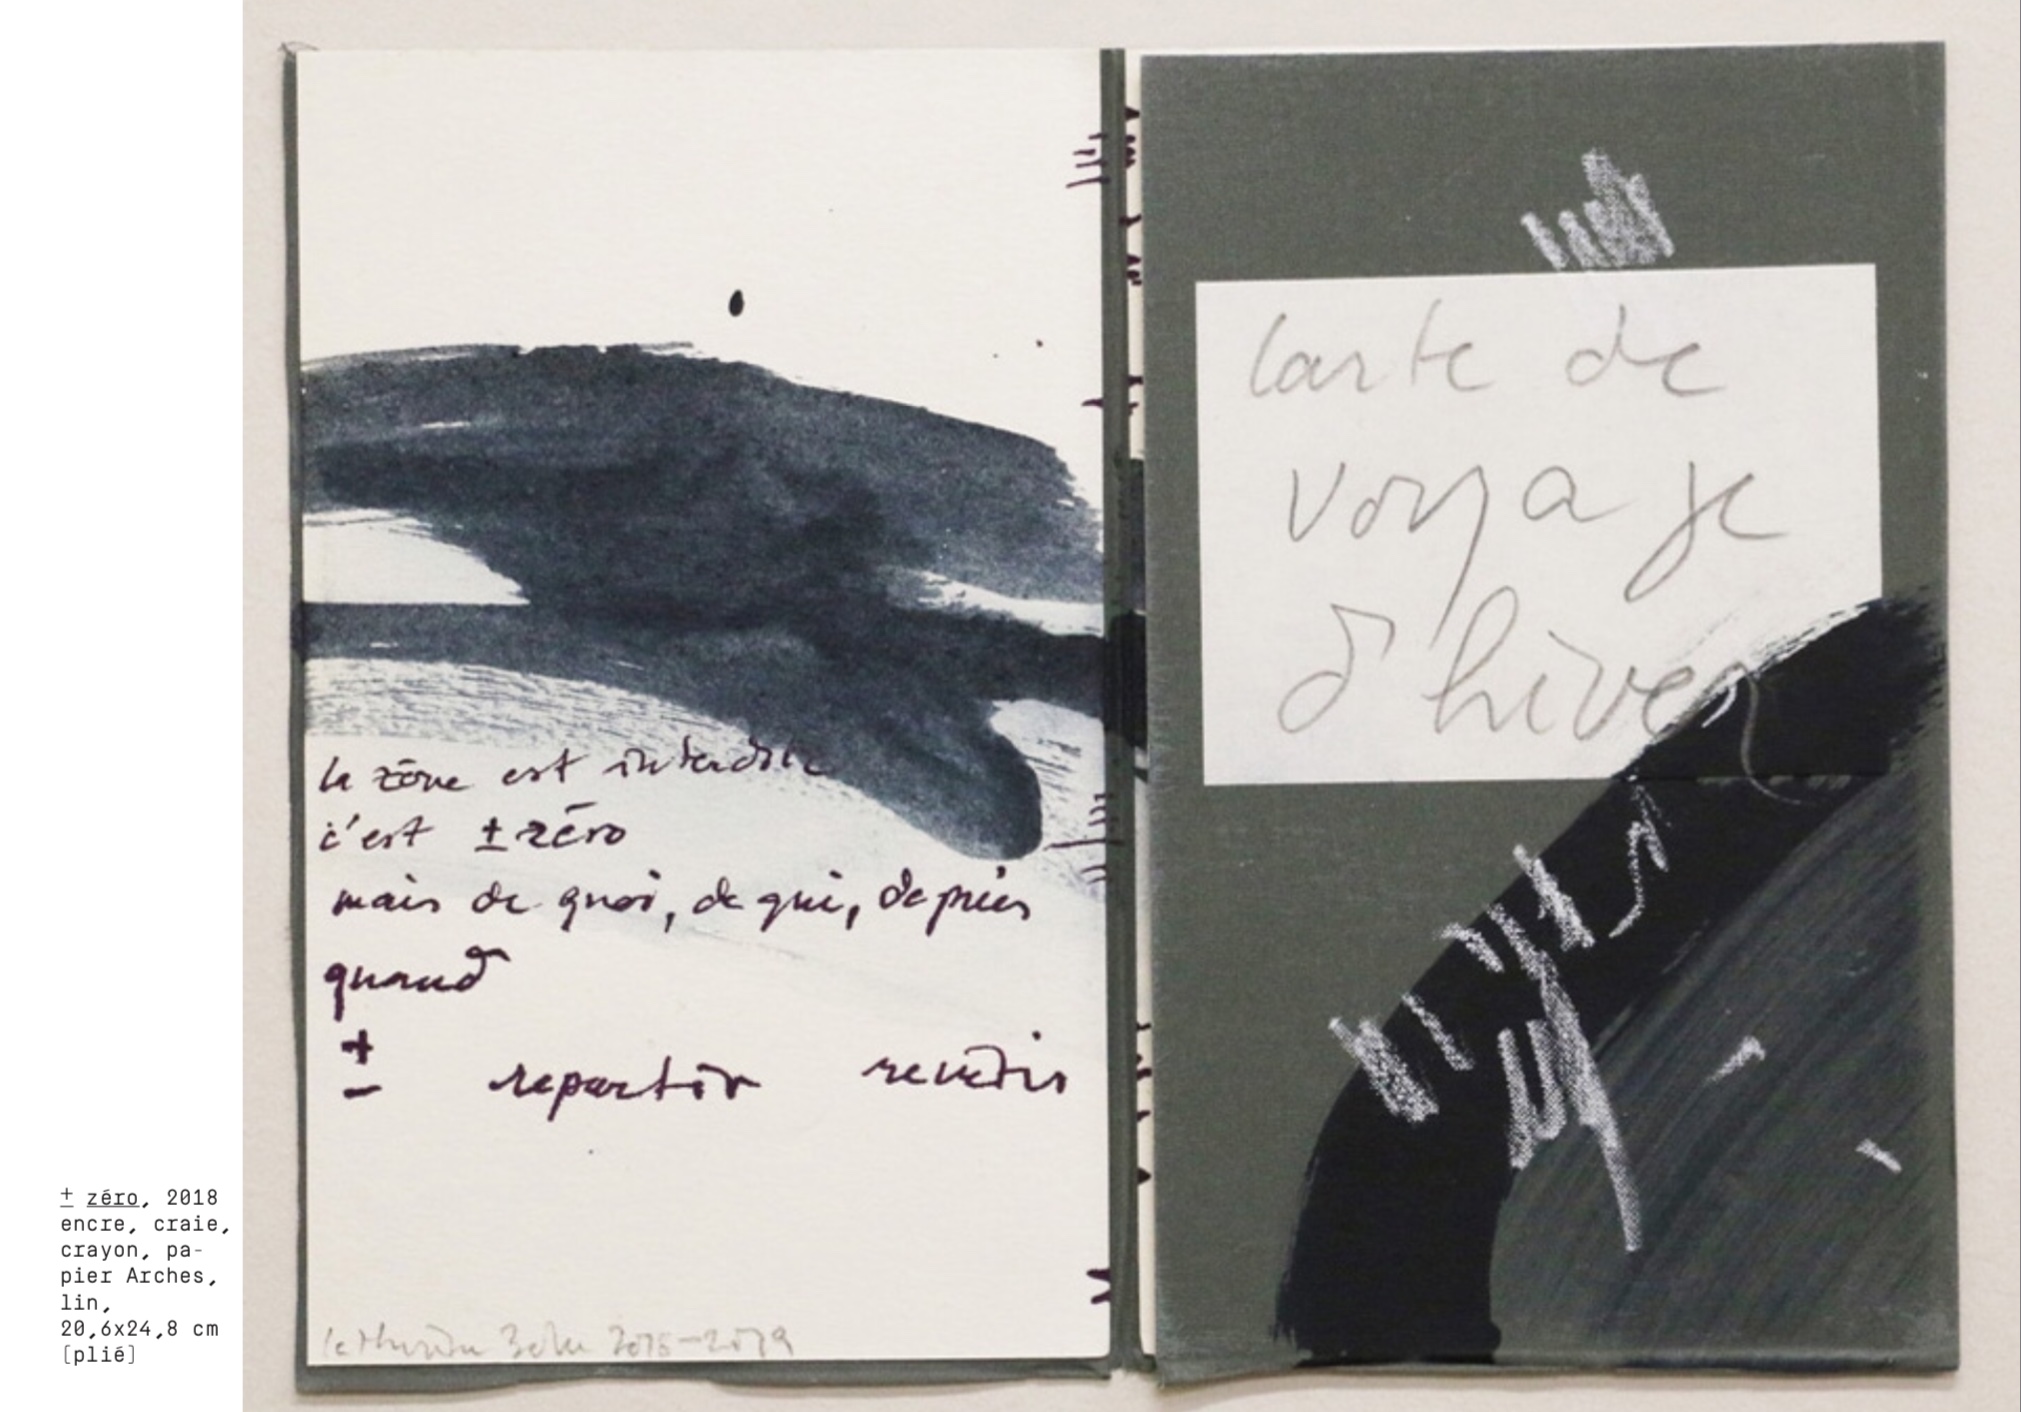 la zone est interdite
c'est ± zéro
mais de quoi, de qui, depuis
quand
± repartir revenir
2018-2019
Carte de
voyage
d'hiver
± zéro, 2018
encre, craie,
crayon, pa-
pier Arches,
lin,
20,6x24,8 cm
[plié]